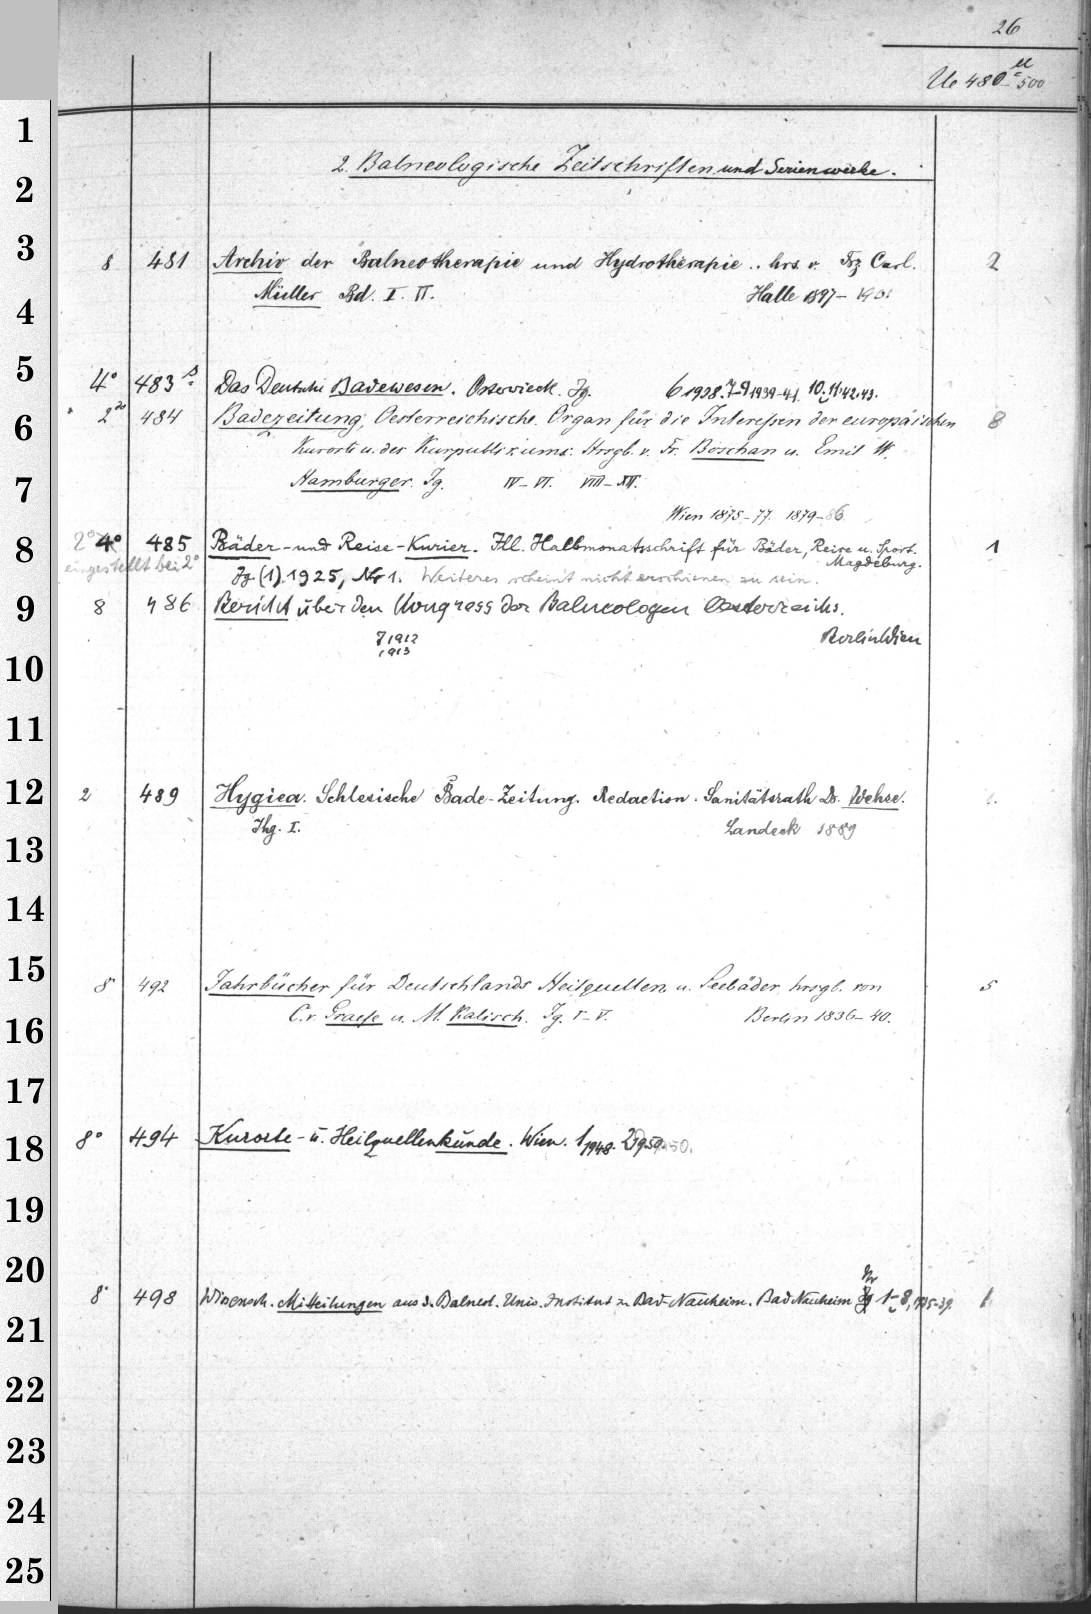 26
Ue 480 - 500
2. Balneologische Zeitschriften und Serienwerke.
8 481 Archiv der Balneotherapie und Hydrotherapie .. hrs. v. Frz Carl. 2
Müller Bd. I. II. Halle 1897- 1901
4° 483 Das Deutsche Badewesen. Osterwieck. Jg. 6 1938. 7-9 1939-41. 10. 11. 42. 43.
2 484 Badezeitung, Oesterreichische. Organ für die Interessen der europäischen 8
Kurorte u. des Kurpublikums. Hrsgb. v. Fr. Boschan u. Emil W.
Hamburger. Jg. IV-VI. VIII-XV.
Wien 1875-77. 1879-86
2° 4° 485 Bäder-und Reise-Kurier. Ill. Halbmonatsschrift für Bäder, Reise u. Sport. 1
eingestellt bei 2° Magdeburg.
Jg. (1). 1925, Nr 1. Weiteres scheint nicht erschienen zu sein.
8 486 Bericht über den Kongress der Balneologen Oesterreichs.
7 1912 Berlin Wien
1913
2 489 Hygiea. Schlesische Bade-Zeitung. Redaction. Sanitätsrath Dr. Wehse. 1.
Jhg. I. Landeck 1889
8° 492 Jahrbücher für Deutschlands Heilquellen u. Seebäder, hrsgb. von 5
C. v. Graefe u. M. Kalisch. Jg. I-V. Berlin 1836-40.
8° 494 Kurorte- u. Heilquellenkunde. Wien. 1 1948. 2 1950.
Nr
8° 498 Wissensch. Mitteilungen aus d. Balneol. Univ. Institut zu Bad-Nauheim. Bad Nauheim Jg 1-8, 1935-39. 1